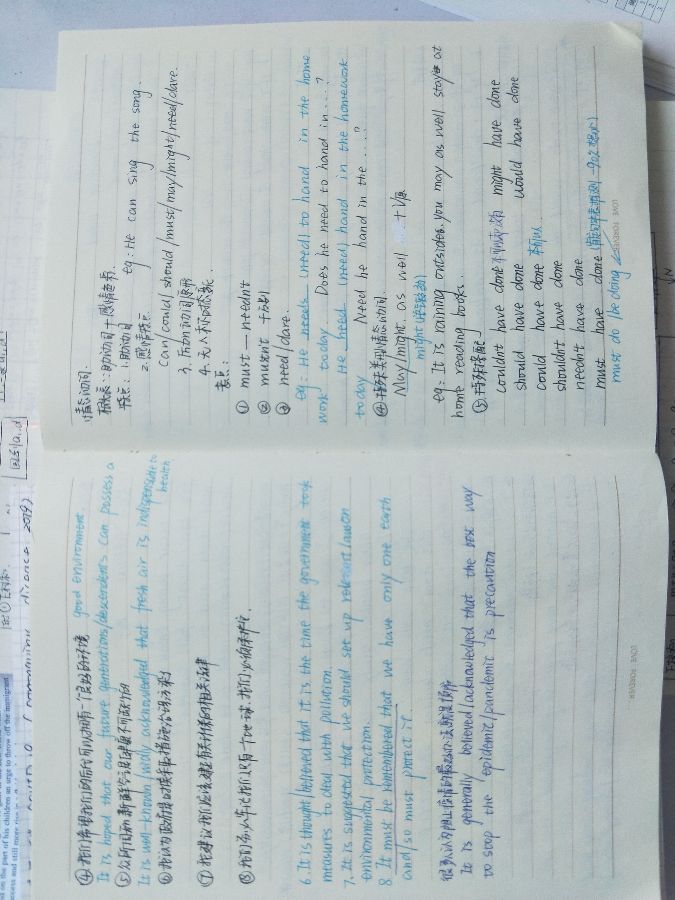 ④我们希望我们的后代可以拥有一个良好的环境 good environment.
It is hoped that our future generations/descendents can possess a
⑤众所周知新鲜空气是健康不可或缺的
It is well-known/widly acknowledged that fresh air is indispensable to health
⑥
⑦我建议我们应该建立有关环保的相关法律
⑧我们务必牢记我们只有一个地球,我们必须保护它.
6. It is thought/believed that it is the time the government took
measures to deal with pollution.
7. It is suggested that we should set up relevant lawson
environmental protection.
8. It must be remembered that we have only one earth
and/so must protect it.
很多人认为阻止疫情的最好办法就是预防
It is generally believed/acknowledged that the best way
to stop the epidemic/pandemic is precaution
LOVE FOREVER
情态动词.
形式:助动词+感情色彩.
特点:1.助动词
2.感情特点 eg: He can sing the song.
can/could/should/must/may/might/need/dare.
3. 后加动词原形
4. 无人称
考点:
① must — needn't
② mustn't 千万别
③ need/dare.
eg: He needs (need) to hand in the home
work today. Does he need to hand in....?
He need (need) hand in the homework
today Need he hand in the ....?
④特殊类型情态动词.
May/might as well +V原
might
eg: It is raining outsides, you may as well stay at
home reading books.
⑤特殊搭配
couldn't have done might have done
should have done would have done
could have done
shouldn't have done
needn't have done
must have done
must do be doing
LOVE FOREVER